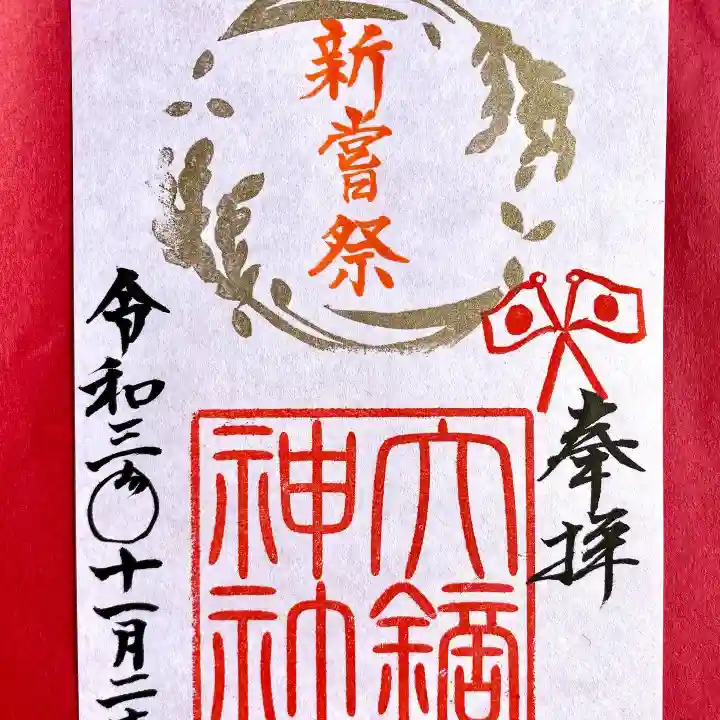 新嘗祭
奉拝
大鏑
神社
令和三年十一月二